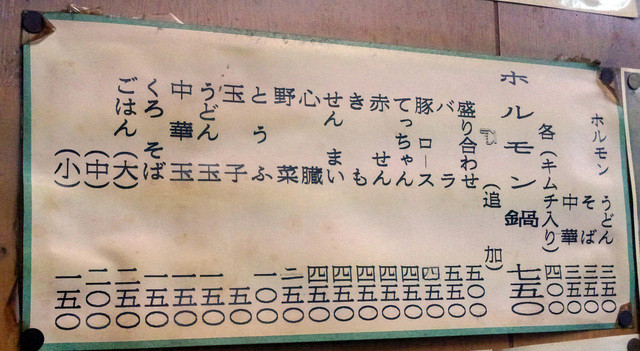 ホルモン うどん 三五〇
そば 三五〇
中華 三五〇
各(キムチ入り) 四〇〇
ホルモン鍋 七五〇
☜ (追加)
盛り合わせ 五〇〇
バラ 五五〇
豚ロース 四五〇
てっちゃん 四五〇
赤せん 四五〇
きも 四五〇
せんまい 四五〇
心臓 四五〇
野菜 二五〇
とうふ 一〇〇
玉子 五〇
うどん玉 一五〇
中華玉 一五〇
くろそば 一五〇
ごはん(大) 二五〇
(中) 二〇〇
(小) 一五〇